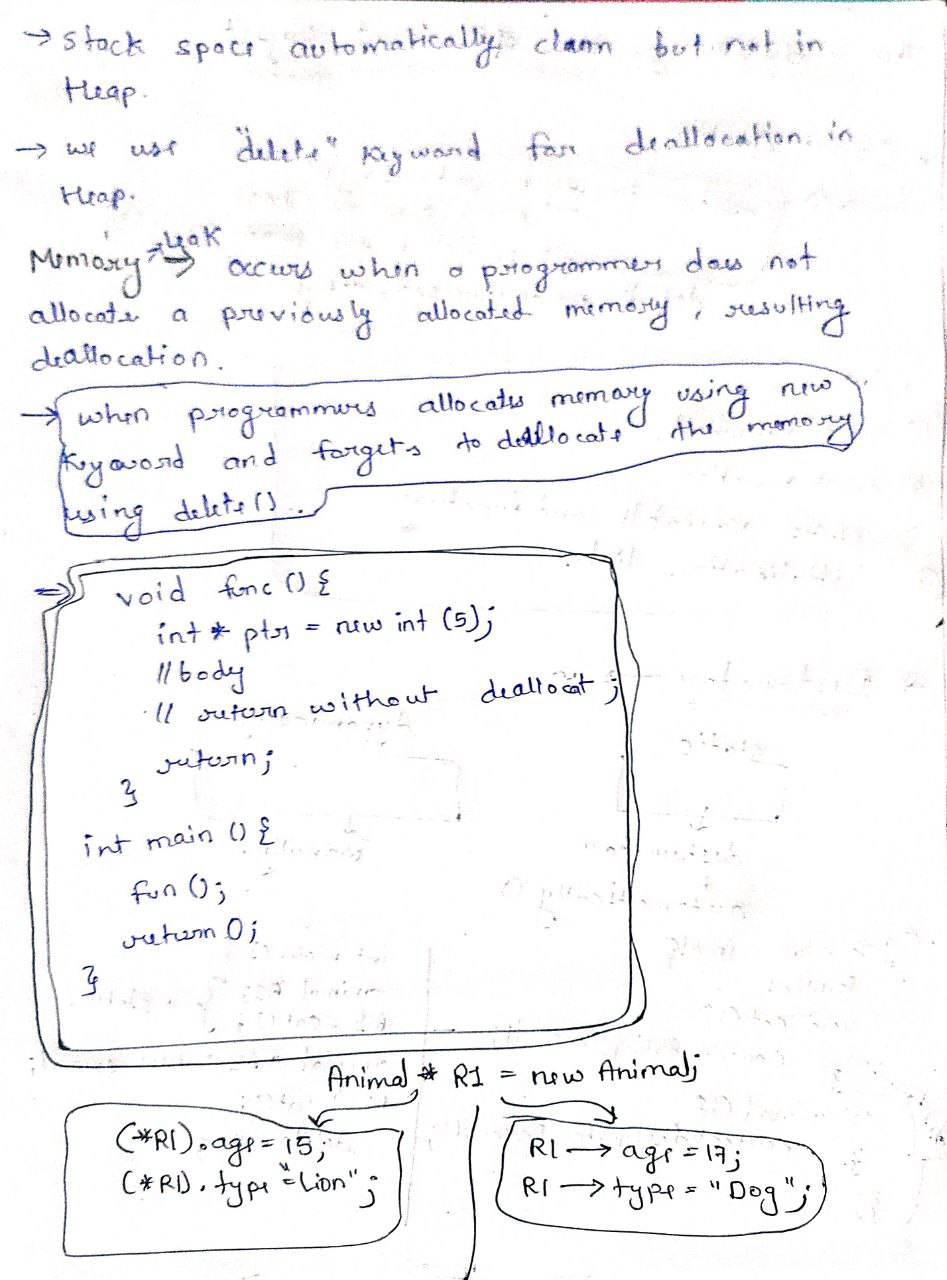 → Stack space automatically clann but not in
Heap.
→ we use "delete" keyword for deallocation in
Heap.
Memory leak → occurs when a programmer does not
allocate a previously allocated memory, resulting
deallocation.
→ when programmers allocates memory using new
keyword and forgets to deallocate the memory
using delete().
⇒ void func () {
int * ptr = new int (5);
// body
// return without deallocat ;
return;
}
int main () {
fun ();
return 0;
}
Animal * R1 = new Animal;
(*R1).age = 15;
(*R1).type = "Lion";
R1 → age = 17;
R1 → type = "Dog";